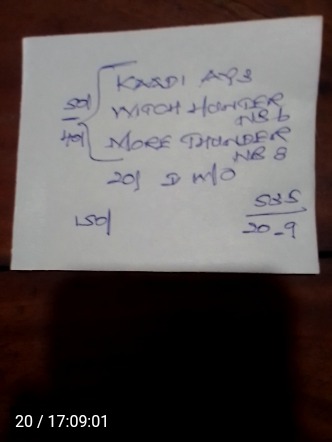 50/
40/
KARDI AQ 3
WITCH HUNTER
NB 6
MORE THUNDER
NB 8
20/ D M/O
150/
535
20-9
20 / 17:09:01